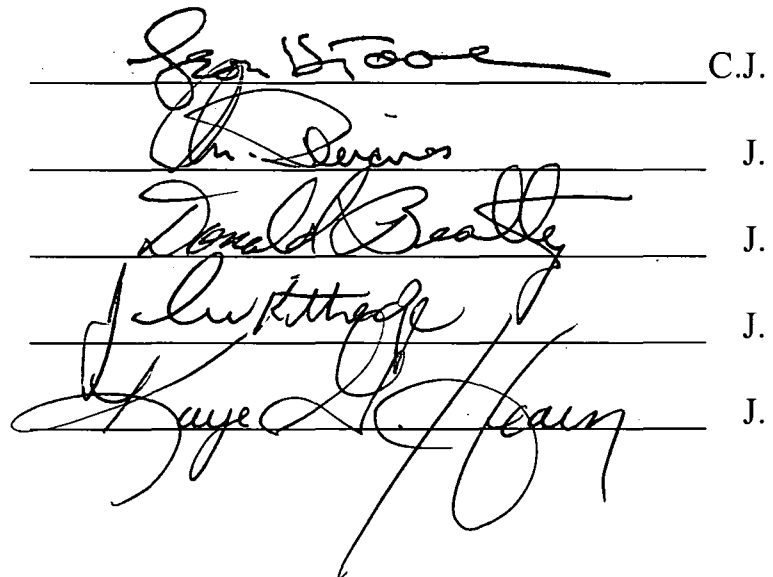 Jean H. Toal C.J.
J.
Donald Beatty J.
J. Kittredge J.
Kaye G. Hearn J.